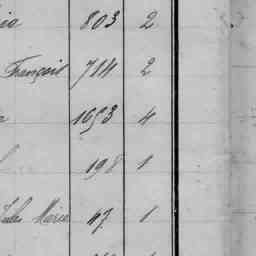 803 2
François 714 2
1693 4
198 1
Jules Marie 47 1